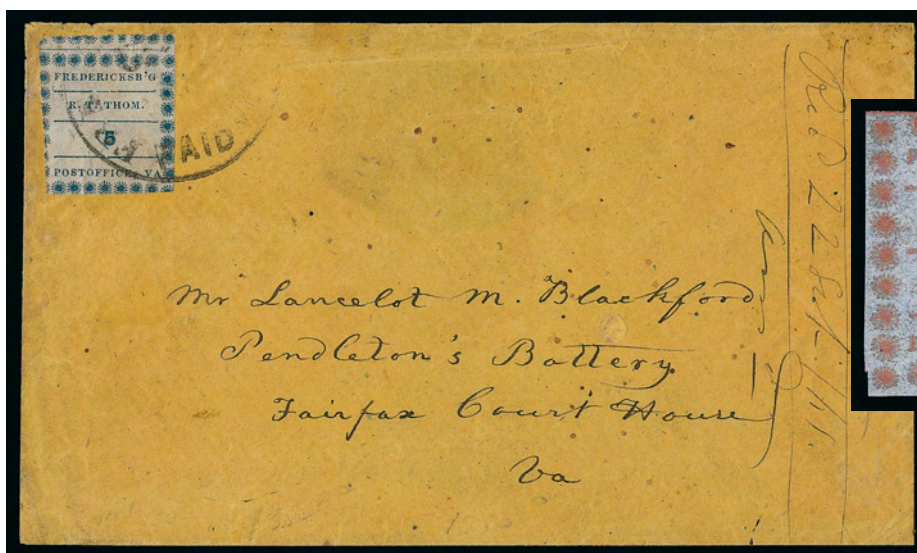 FREDERICKSB'G
R. T. THOM.
5
PAID
POSTOFFICE, VA
Mr Lancelot M. Blackford
Pendleton's Battery
Fairfax Court House
Va
22